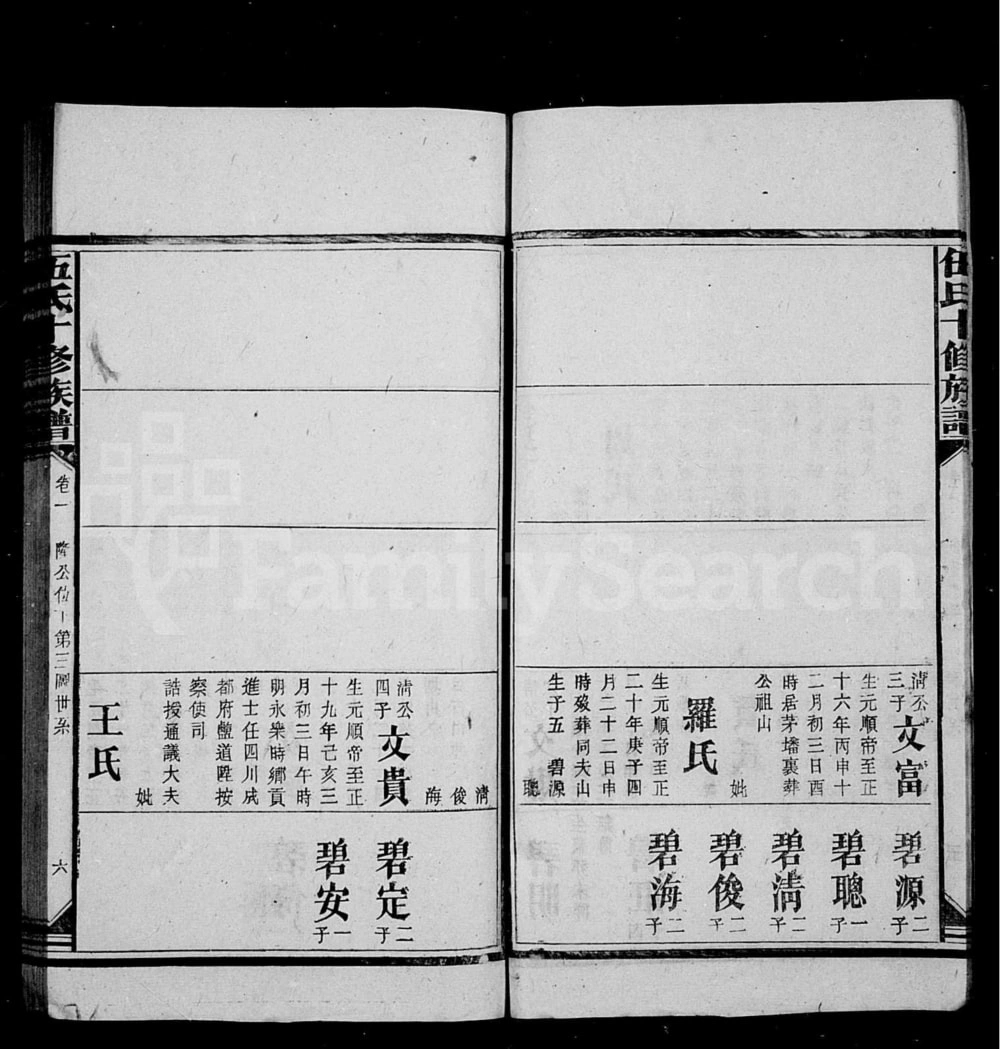 伍氏十修族譜
清公三子
文富
生元順帝至正
十六年丙申十
二月初三日酉
時居茅墦裏葬
公祖山
妣
羅氏
生元順帝至正
二十年庚子四
月二十二日申
時歿葬同夫山
生子五 碧源
聰
碧源
二子
碧聰
一子
碧清
二子
碧俊
二子
碧海
二子
清
俊
海
清公四子
文貴
生元順帝至正
十九年己亥三
月初三日午時
明永樂時鄉貢
進士任四川成
都府鹽道陞按
察使司
誥授通議大夫
妣
王氏
碧定
二子
碧安
一子
伍氏十修族譜
卷一
隆公位下第三圖世系
六
FamilySearch